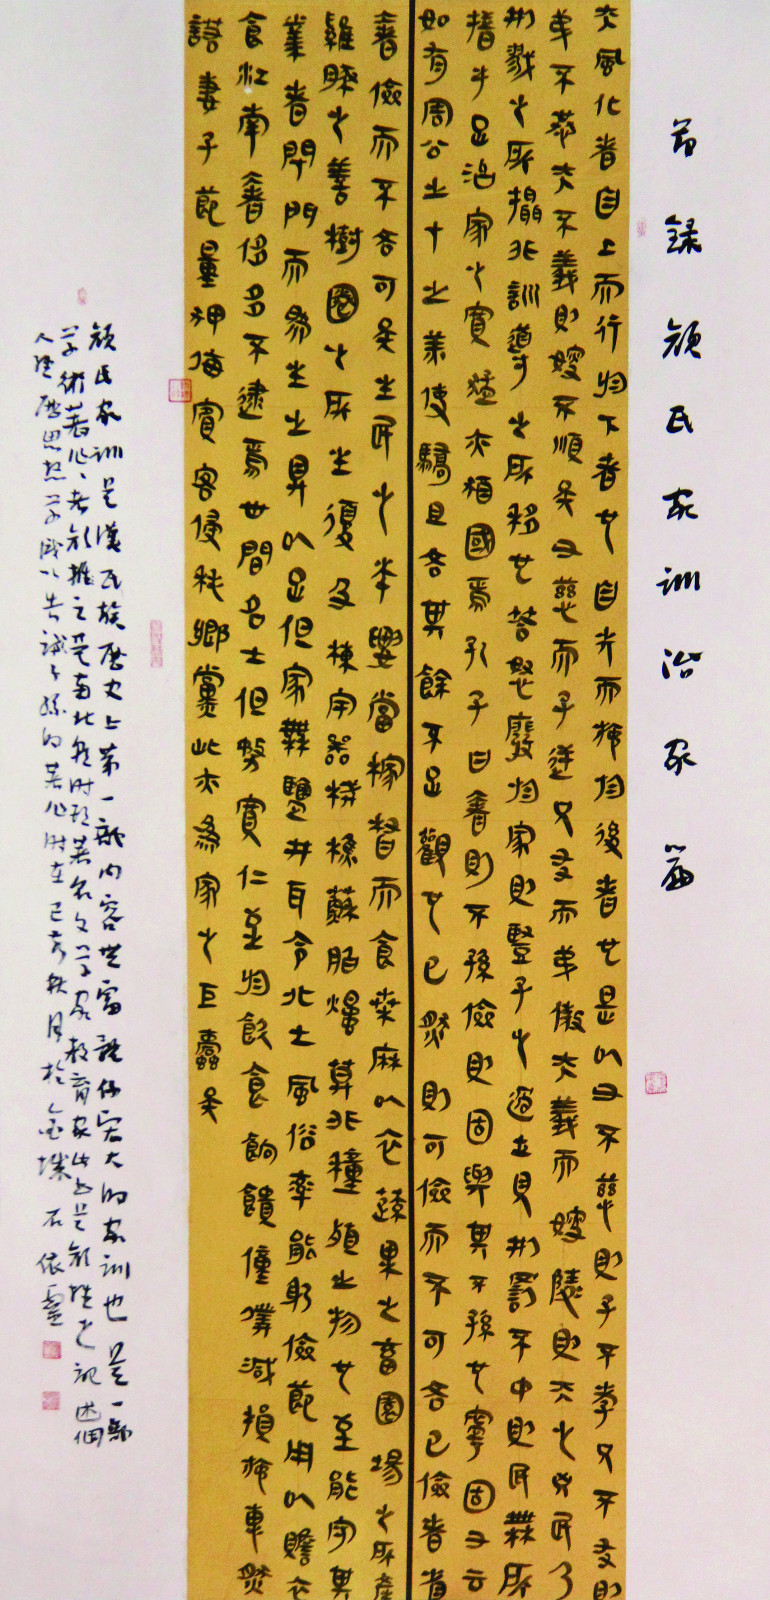 節録颜氏家訓治家篇
夫風化者自上而行於下者也自先而施於後者也是以父不慈則子不孝兄不友則
弟不恭夫不義則婦不順矣父慈而子逆兄友而弟傲夫義而婦陵則天之凶民乃
刑戮之所攝非訓導之所移也笞怒廢於家則豎子之過立見刑罰不中則民無所
措手足治家之寬猛亦猶國焉孔子曰奢則不孫儉則固與其不孫也寧固又云
如有周公之才之美使驕且吝其餘不足觀也已然則可儉而不可吝已儉者省
奢儉而不吝可矣生民之本要當稼穡而食桑麻以衣蔬果之畜園場之所產
雞豚之善樹圈之所生復及棟宇器械樵蘇脂燭莫非種殖之物也至能守其
業者閉門而為生之具以足但家無鹽井耳今北土風俗率能躬儉節用以贍衣
食江南奢侈多不逮焉世間名士但務寬仁至於飲食餉饋僮僕減損施惠然
諾妻子節量狎侮賓客侵耗鄉黨此亦為家之巨蠹矣
颜氏家训是漢民族历史上第一部内容豐富体系宏大的家训也是一部
学術著作作者颜推之是南北朝时期著名文学家教育家此书是颜推之记述個
人经历思想学识以告诫子孫的著作时在己亥秋月於金 石依靈